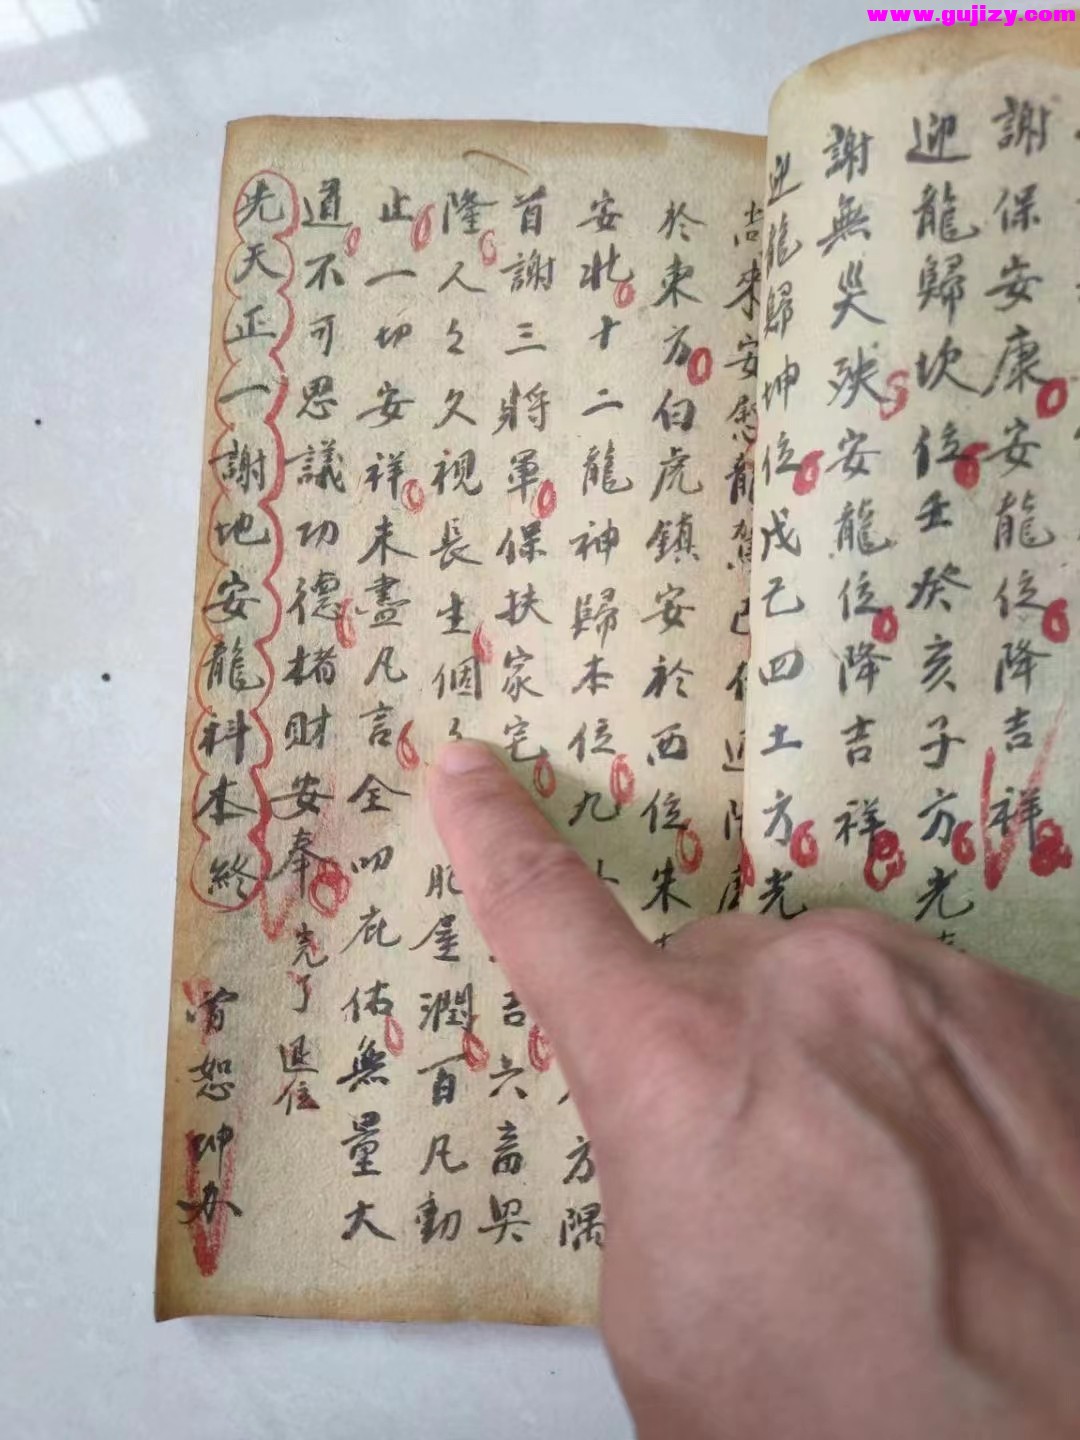 www.gujizy.com
謝保安康安龍位降吉祥
迎龍歸坎位壬癸亥子方光
謝無災殃安龍位降吉祥
迎龍歸坤位戊己四土方光
尚來安慰龍駕已
於東方白虎鎮安於西位朱
安北十二龍神歸本位九
方隅
首謝三將軍保扶家宅
吾六畜興
隆人々久視長生個々
肥屋潤百凡動
止一切安祥未盡凡言全叨庇佑無量大
道不可思議功德楮財安奉完了退位
先天正一謝地安龍科本終
胥恕坤办